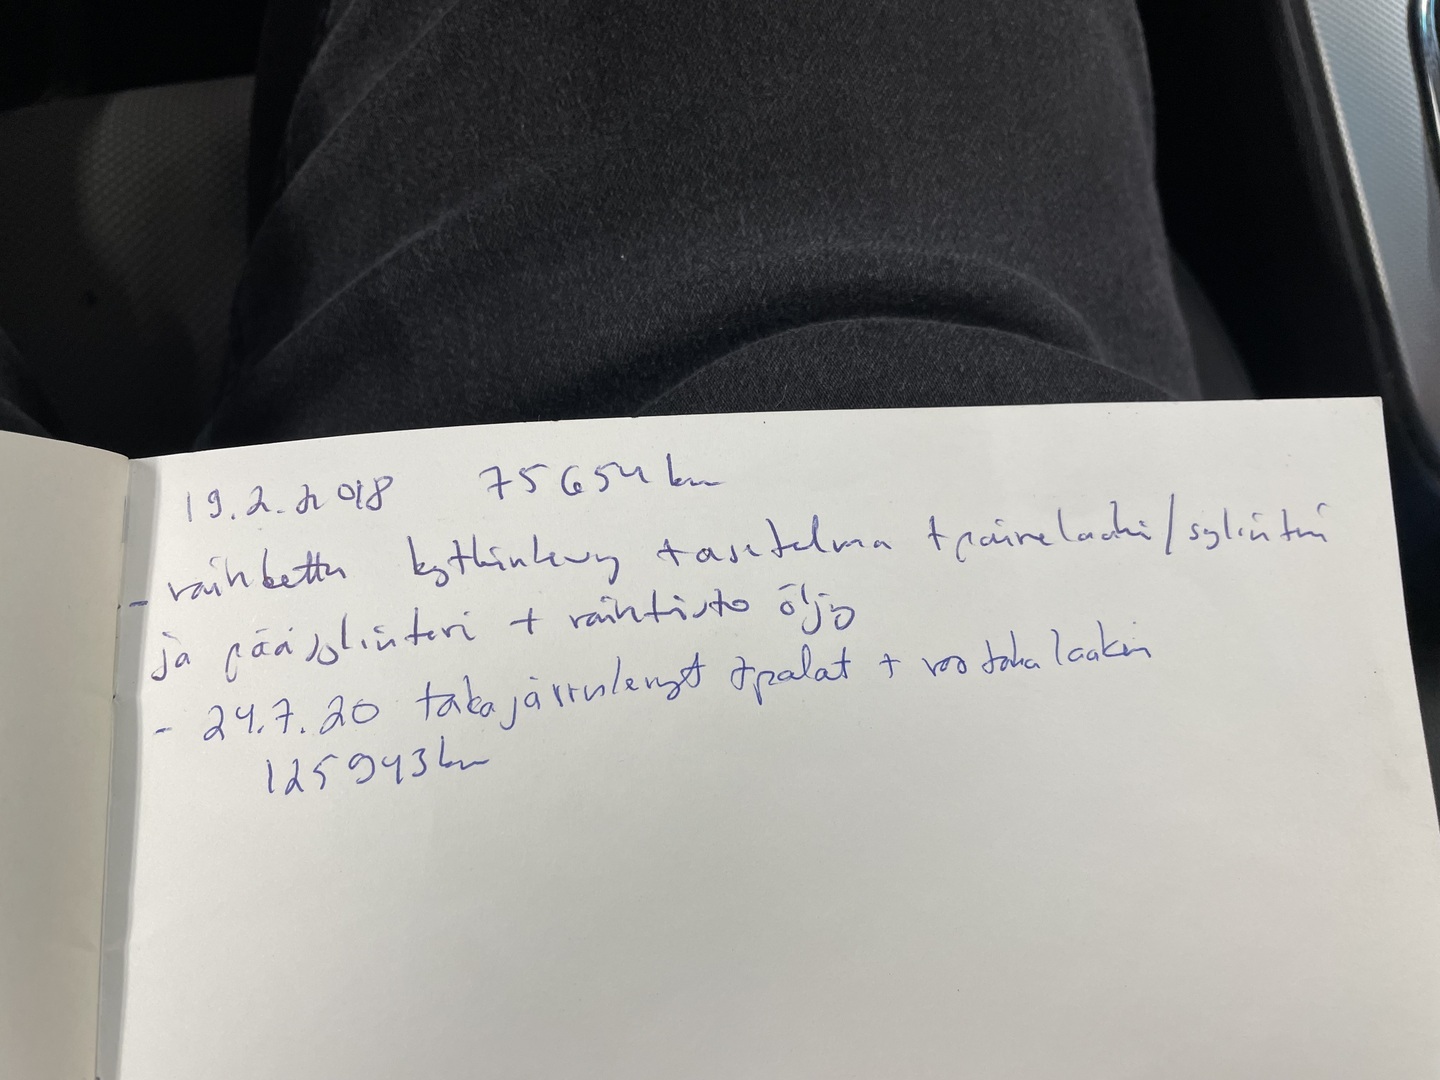 19.2.2018 75654 km
- vaihdettu kytkinlevy + asetelma + painelaakeri/sylinteri
ja pääsylinteri + vaihteisto öljy
- 24.7.20 takajarrulevyt + palat + vas takalaakeri
125943 km